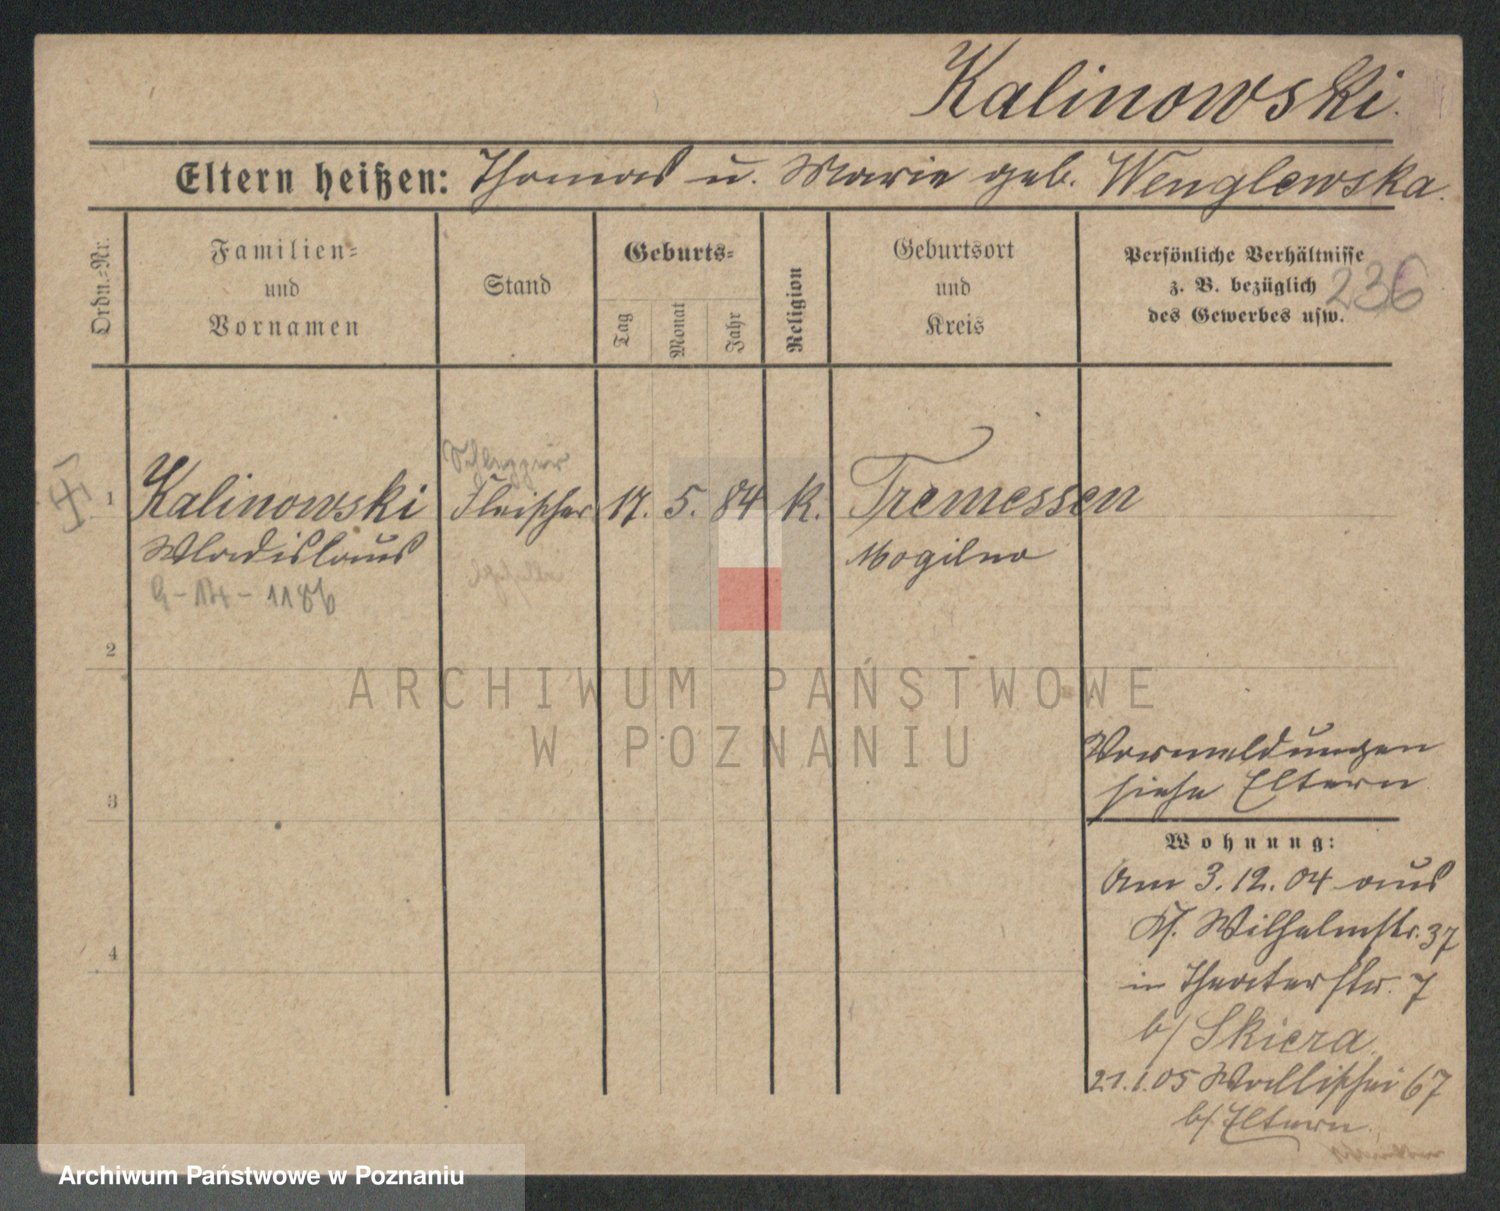 Kalinowski.
Eltern heißen: Thomas u. Marie geb. Wenglewska.
Ordn.-Nr.
Familien-
und
Vornamen
Stand
Geburts-
Tag
Monat
Jahr
Religion
Geburtsort
und
Kreis
Persönliche Verhältnisse
z. B. bezüglich
des Gewerbes usw.
236
1 Kalinowski Fleischer 17. 5. 84 K. Tremessen
Wladislaus Mogilno
G-14-1186
2
ARCHIWUM PAŃSTWOWE
W POZNANIU
Vormeldungen
siehe Eltern
3
Wohnung:
Am 3.12.04 aus
Wilhelmstr. 37
4
in Theaterstr. 7
b/ Skiera
21.1.05 Wallischei 67
b/ Eltern
Archiwum Państwowe w Poznaniu